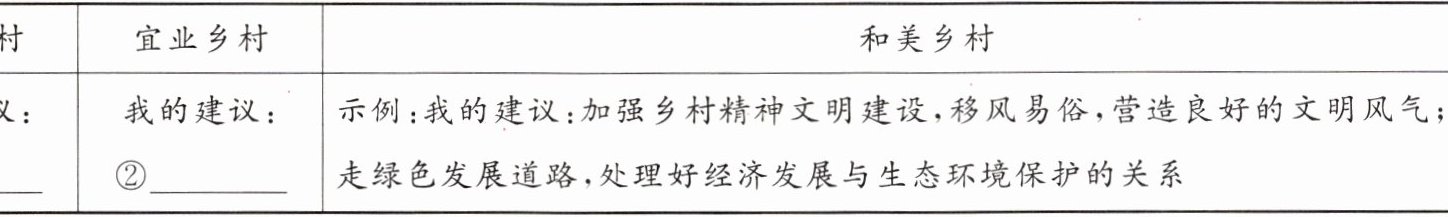 村 宜业乡村 和美乡村
议: 我的建议: 示例:我的建议:加强乡村精神文明建设,移风易俗,营造良好的文明风气;
②________ 走绿色发展道路,处理好经济发展与生态环境保护的关系